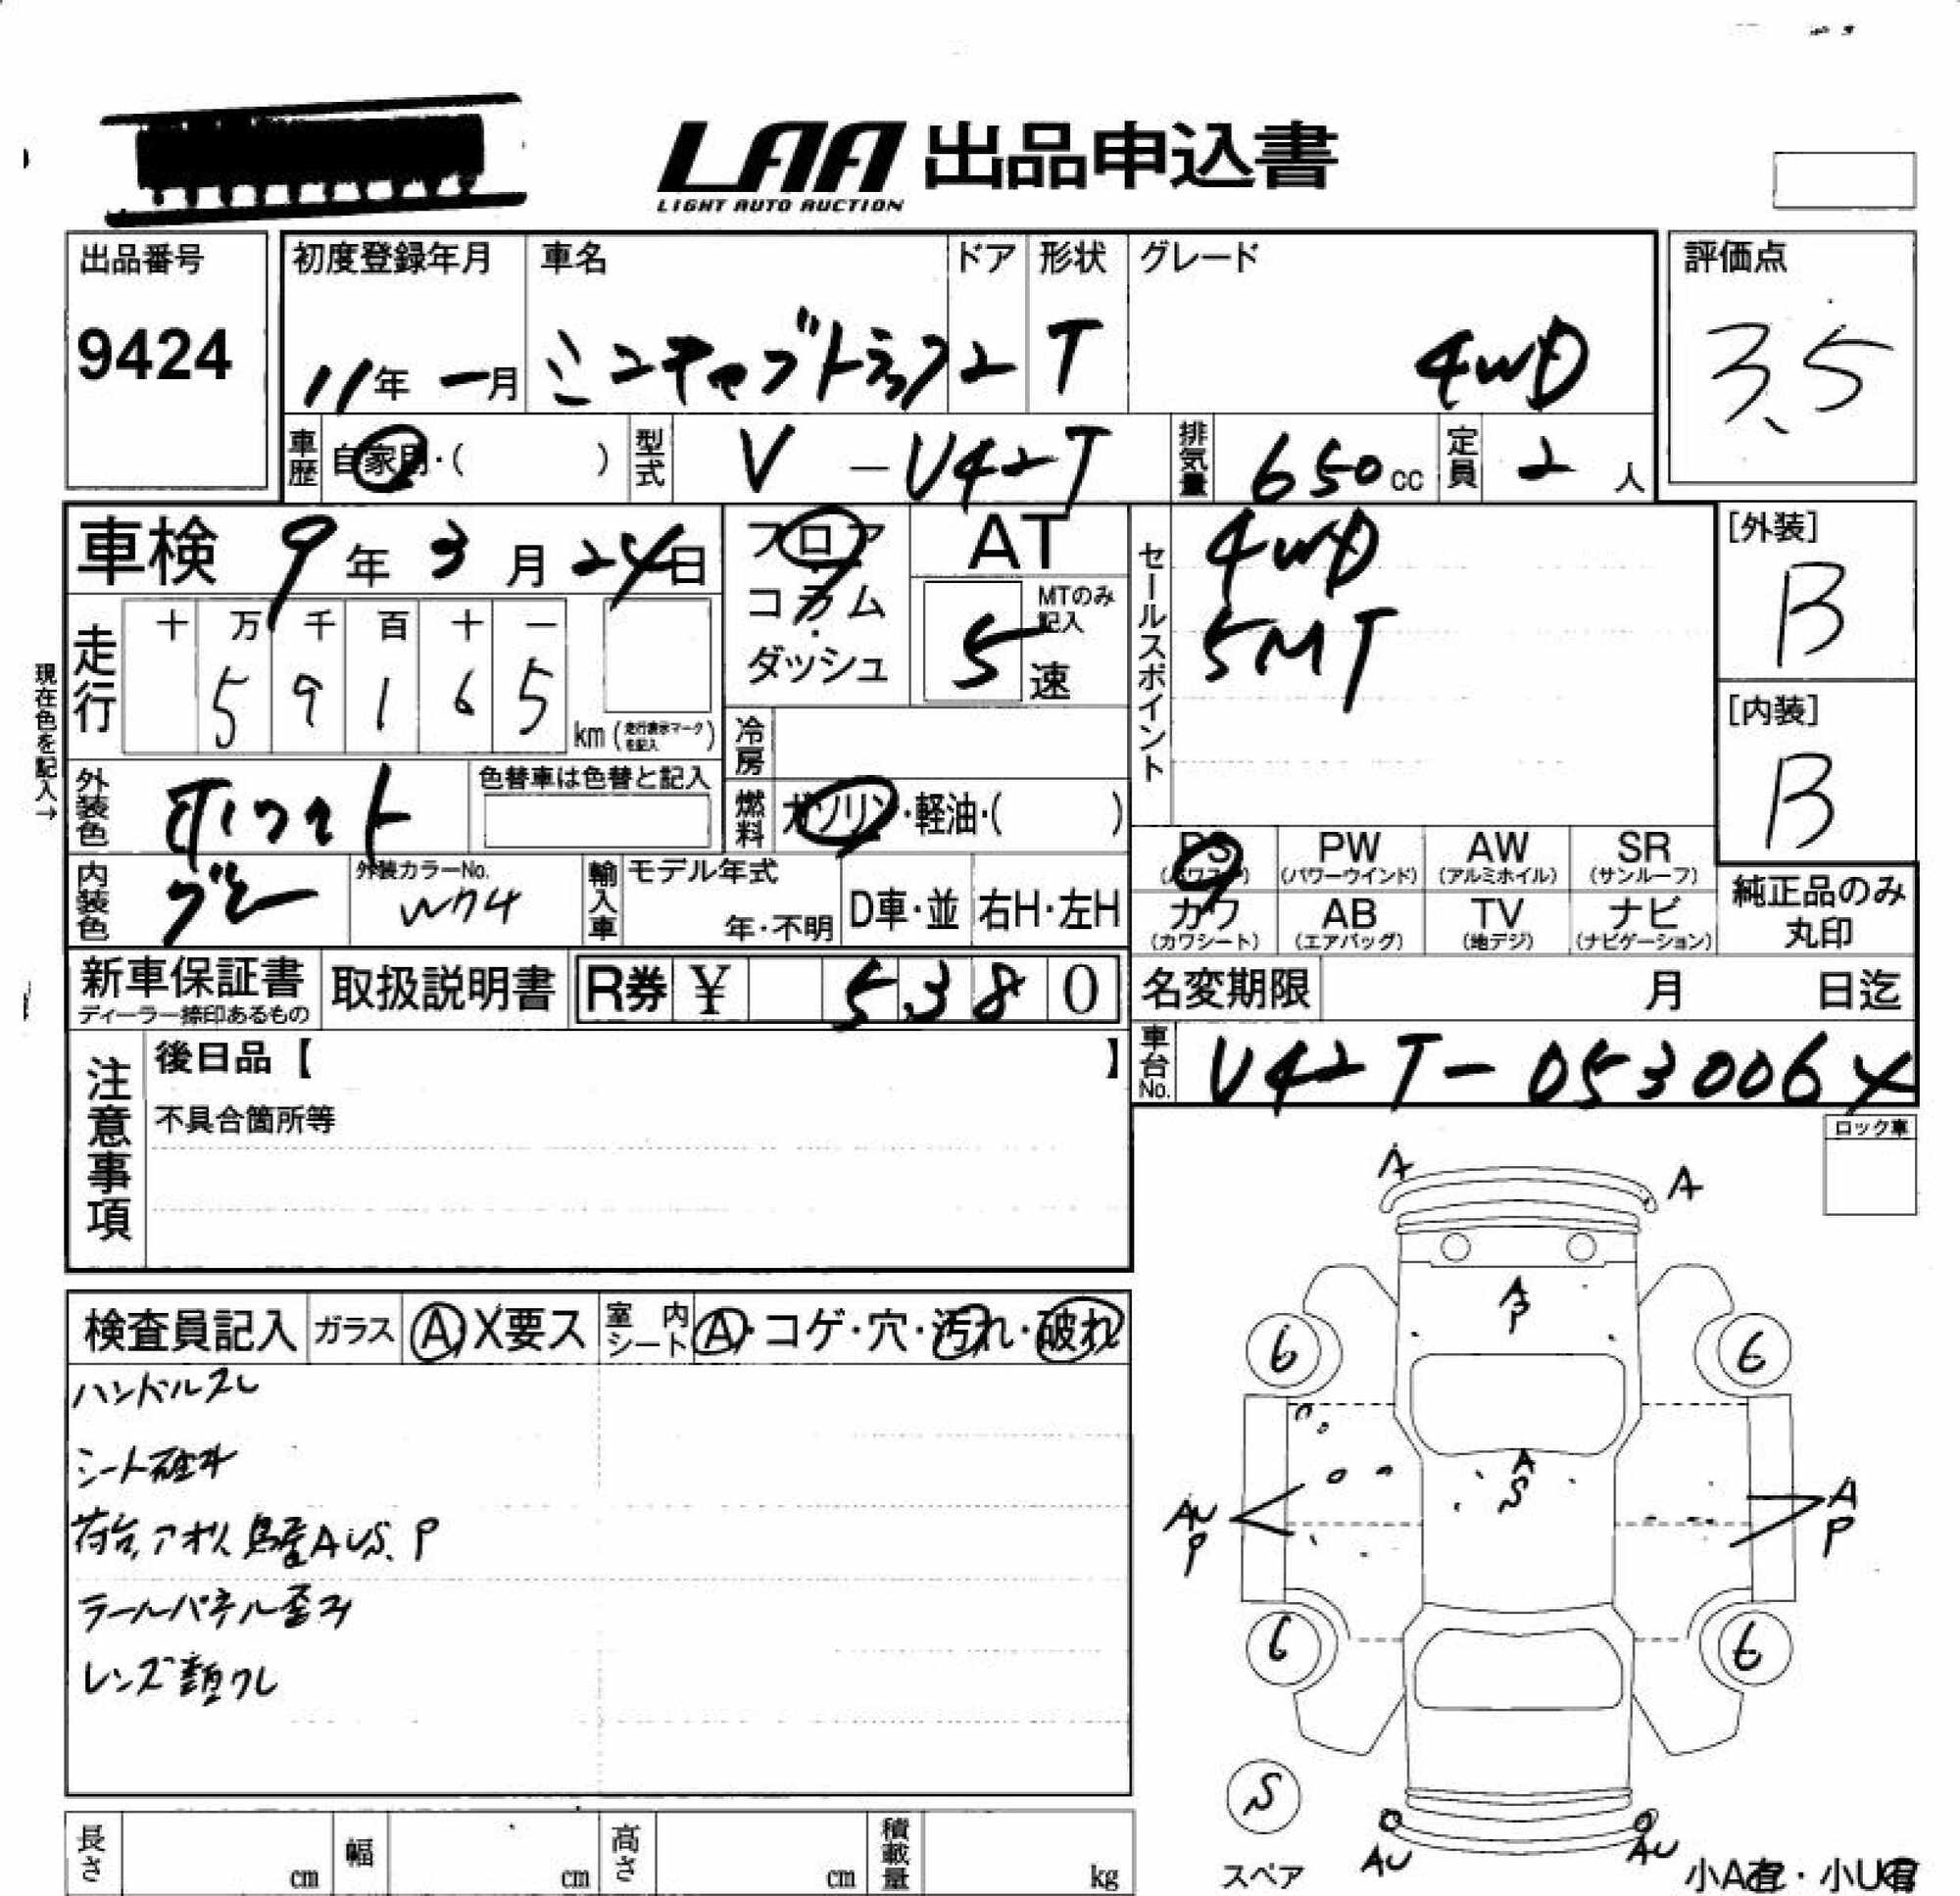 LAA 出品申込書
LIGHT AUTO AUCTION
出品番号
9424
初度登録年月
11年 一月
車名
ミニキャブトラック
ドア
2
形状
T
グレード
4WD
評価点
3.5
車歴
自家用・( )
型式
V-U42T
排気量
650cc
定員
2人
車検 9年 3月 24日
フロア・コラム・ダッシュ
AT
MTのみ記入
5速
セールスポイント
4WD
5MT
[外装]
B
[内装]
B
現在色を記入→
走行
十 万 千 百 十 一
5 9 1 6 5
km (走行表示マークを記入)
冷房
外装色
ホワイト
色替車は色替と記入
燃料
ガソリン・軽油・( )
PS (パワステ)
PW (パワーウインド)
AW (アルミホイル)
SR (サンルーフ)
カワ (カワシート)
AB (エアバッグ)
TV (地デジ)
ナビ (ナビゲーション)
純正品のみ丸印
内装色
グレー
外装カラーNo.
W74
輸入車
モデル年式
年・不明
D車・並
右H・左H
新車保証書
ディーラー捺印あるもの
取扱説明書
R券 ¥ 5,380
名変期限 月 日迄
車台No.
U42T-0530064
注意事項
後日品【 】
不具合箇所等
ロック車
検査員記入
ガラス
A X要ス
室内シート
A・コゲ・穴・汚れ・破れ
ハンドルスレ
荷台、アオリ、鳥居AUS.P
テールパネル歪み
レンズ類クレ
A A
A
P
6 6
A
S
AU
P
A
P
6 6
S
スペア
AU AU
小A有・小U有
長さ cm
幅 cm
高さ cm
積載量 kg